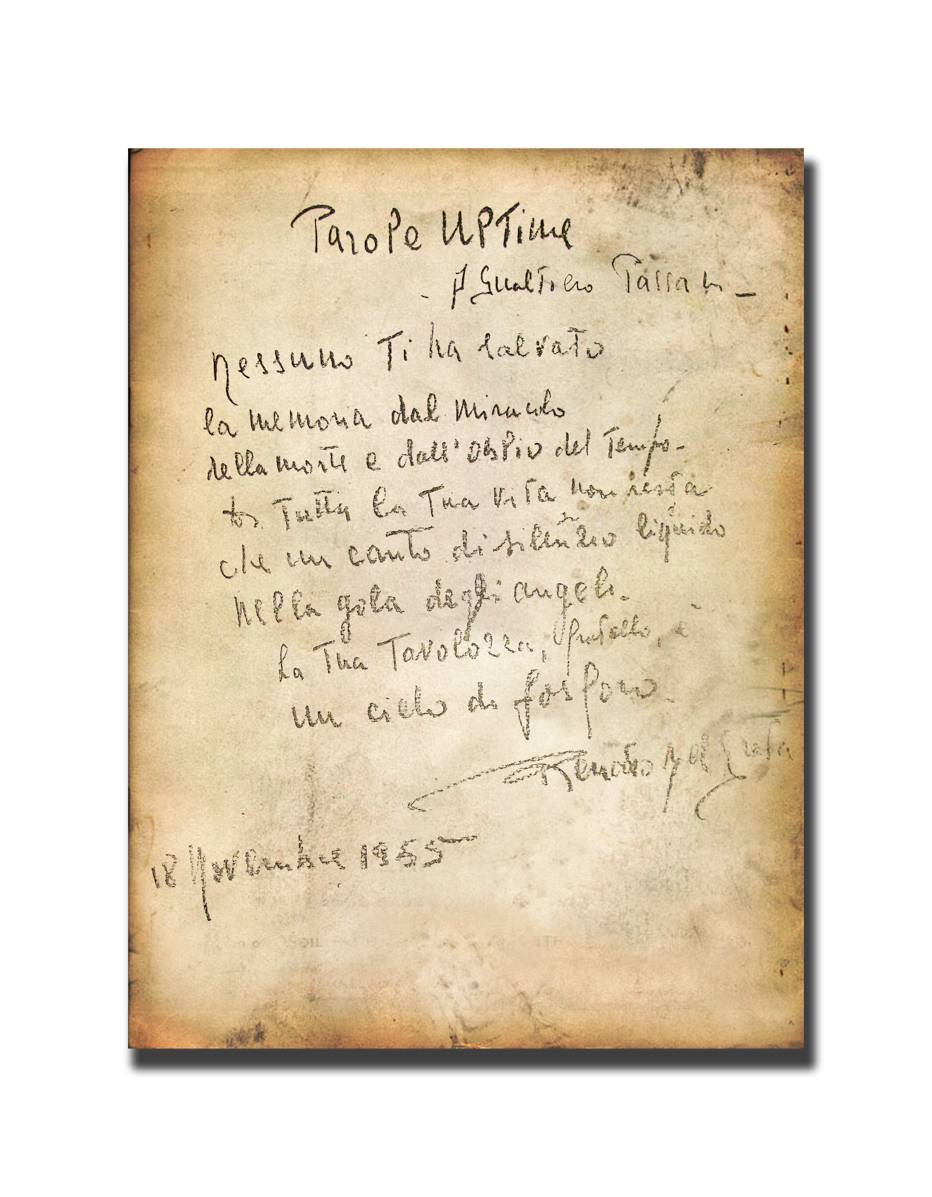 Parole ultime
a Gualtiero Passani
Nessuno Ti ha salvato
la memoria dal miracolo
della morte e dall'oblio del Tempo.
Di Tutta la Tua vita non resta
che un canto di silenzio liquido
nella gola degli angeli.
La Tua Tavolozza, fratello, è
un cielo di fosforo.
18 Novembre 1955